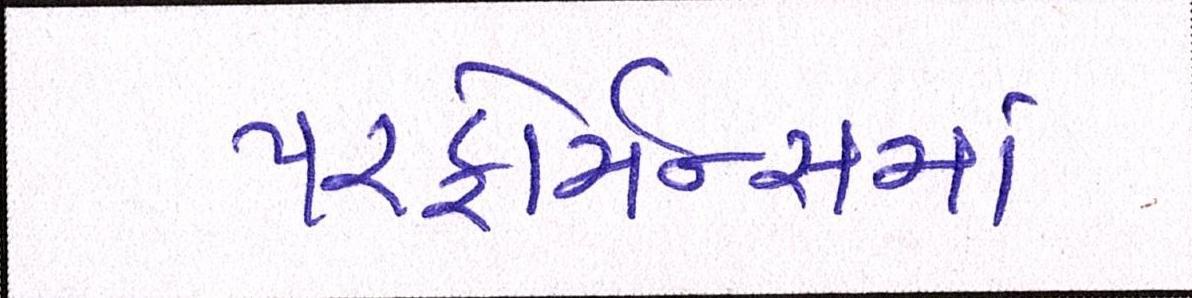 પરફોર્મન્સમાં